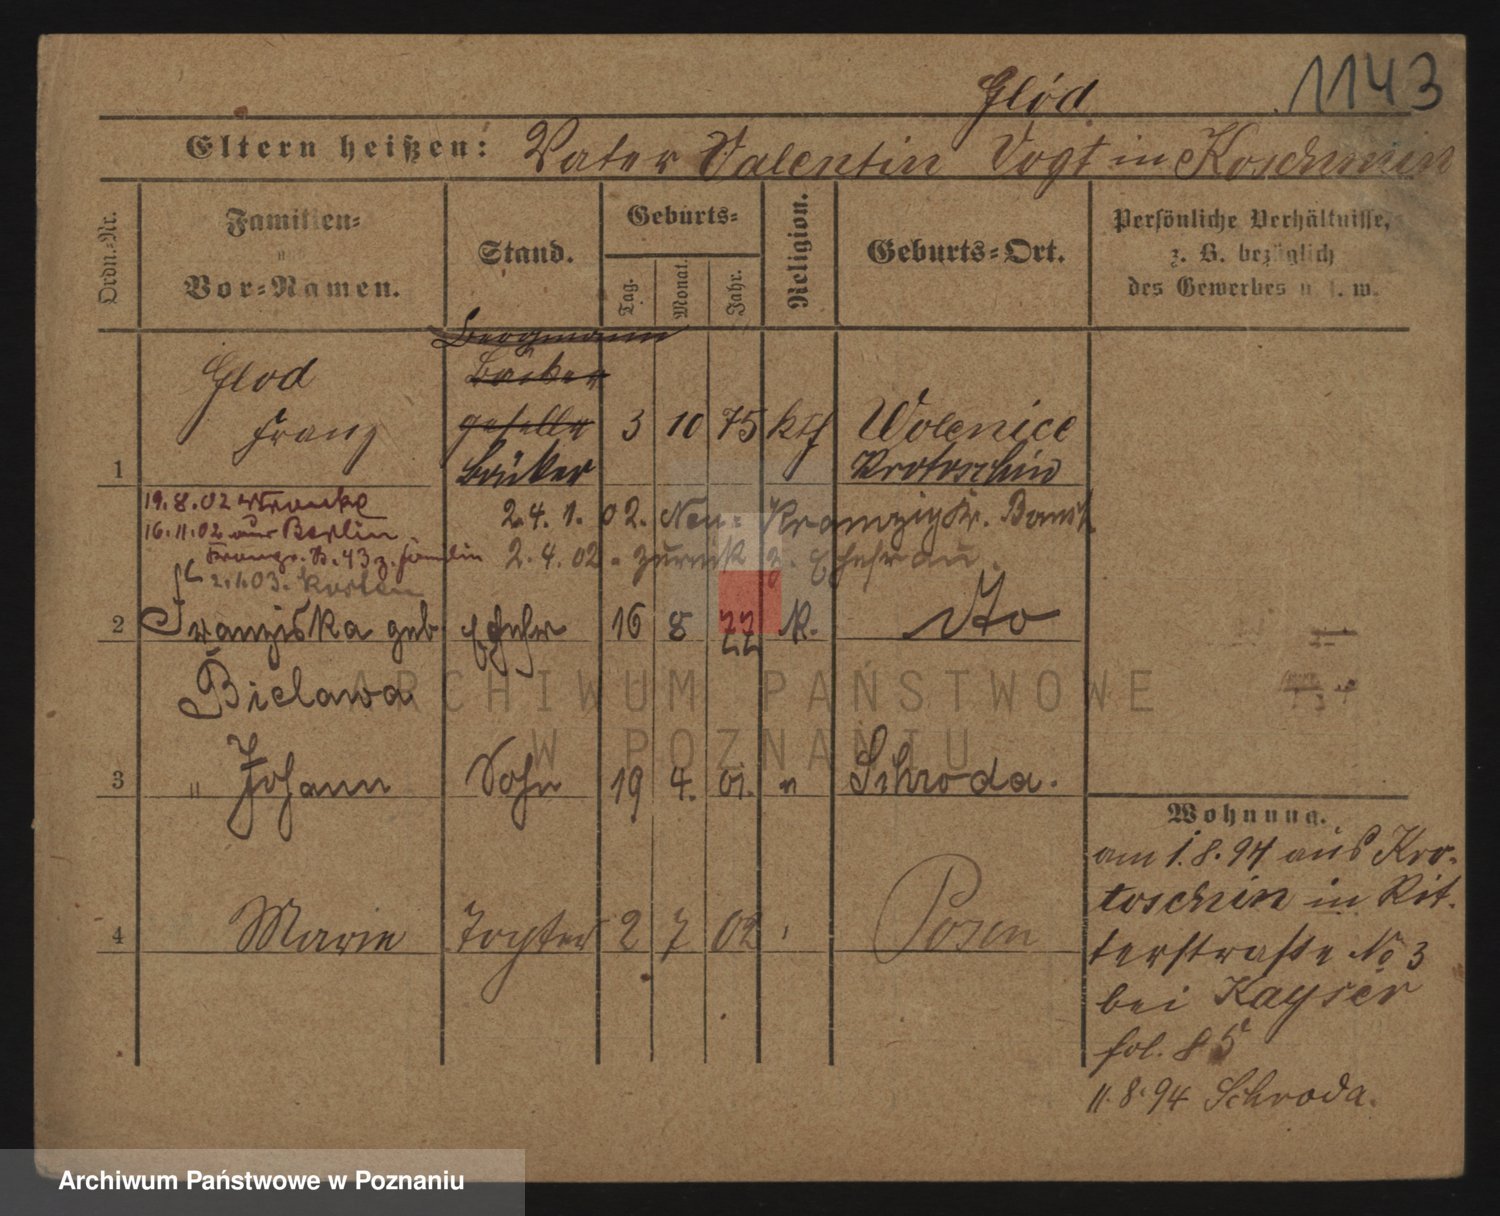 Głód 1143
Eltern heißen: Vater Valentin Vogt in Koschmin
Ordn.-Nr.
Familien-
u
Vor-Namen.
Stand.
Geburts-
Tag.
Monat.
Jahr.
Religion.
Geburts-Ort.
Persönliche Verhältnisse,
z. B. bezüglich
des Gewerbes u. s. w.
Bergmann
Bäcker
geselle
Bäcker
1 Glod
Franz
3 10 75 kth Wolenice
Krotoschin
19.8.02
16.11.02 aus Berlin
2.4.1.02. Neu-
2.4.02 - zurück z. Ehefrau.
2.1.03.
2 Franziska geb. Ehefr 16 8 77 K. Ito
77
Bielawa
3 " Johann Sohn 19 4. 01. " Schroda.
4 Marie Tochter 2 7 02 Posen
Wohnung.
am 1.8.94 aus Kro-
toschin in Rit-
terstraße No 3
bei Kayser
fol. 85
11.8.94 Schroda.
ARCHIWUM PAŃSTWOWE
W POZNANIU
Archiwum Państwowe w Poznaniu